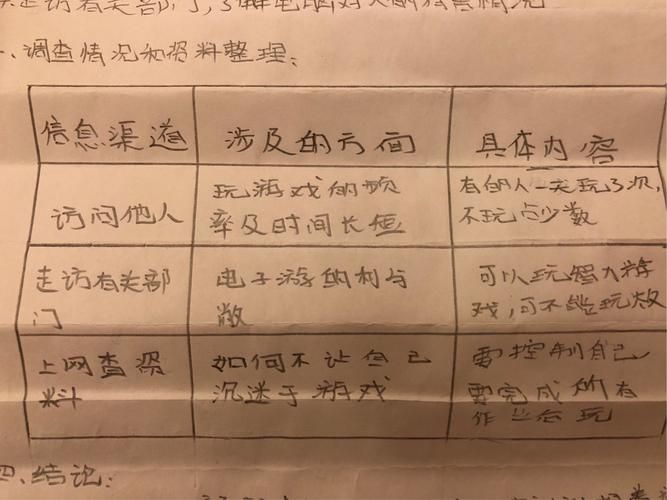 走访有关部门,了解电脑对人的危害情况
、调查情况和资料整理:
信息渠道 涉及的方面 具体内容
访问他人 玩游戏的频
率及时间长短 有的人一天玩了次,
不玩占少数
走访有关部
门 电子游的利与
敝 可以玩智力游
戏,可不能玩
上网查资
料 如何不让自己
沉迷于游戏 要控制自己
要完成所有
作业在玩
四、结论: